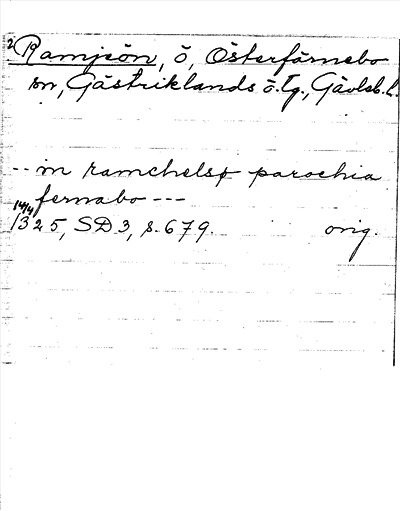 2 Ramsön, ö, Österfärnebo
sn, Gästriklands ö. tg., Gävleb. l.
-- in ramchelsø parochia
fernabo ---
14/4
1325, SD 3, s. 679. orig.